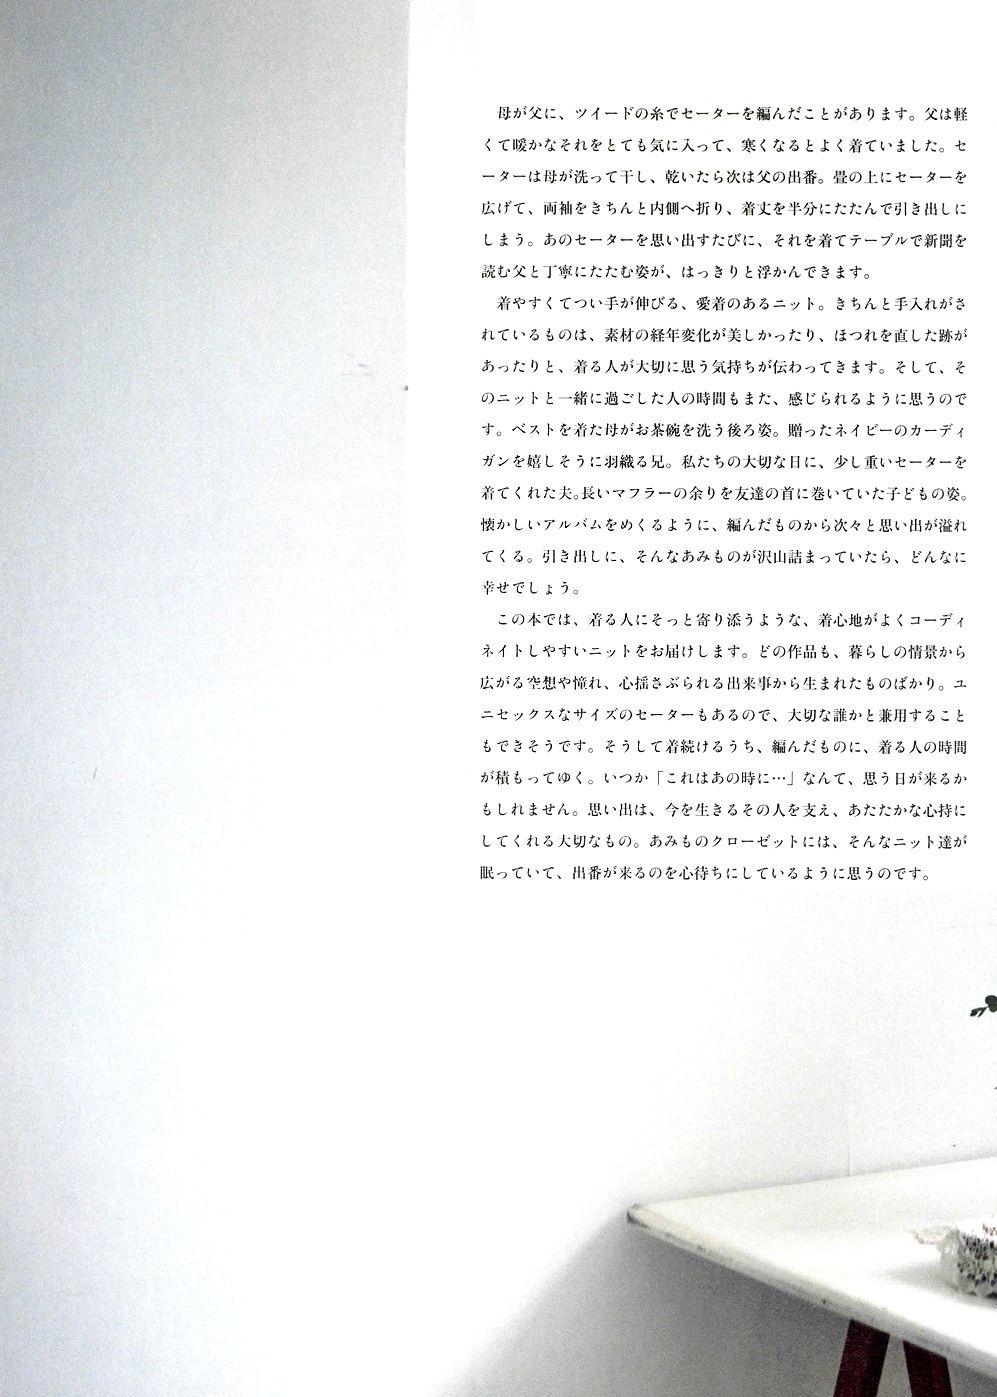 母が父に、ツイードの糸でセーターを編んだことがあります。父は軽
くて暖かなそれをとても気に入って、寒くなるとよく着ていました。セ
ーターは母が洗って干し、乾いたら次は父の出番。畳の上にセーターを
広げて、両袖をきちんと内側へ折り、着丈を半分にたたんで引き出しに
しまう。あのセーターを思い出すたびに、それを着てテーブルで新聞を
読む父と丁寧にたたむ姿が、はっきりと浮かんできます。
　着やすくてつい手が伸びる、愛着のあるニット。きちんと手入れがさ
れているものは、素材の経年変化が美しかったり、ほつれを直した跡が
あったりと、着る人が大切に思う気持ちが伝わってきます。そして、そ
のニットと一緒に過ごした人の時間もまた、感じられるように思うので
す。ベストを着た母がお茶碗を洗う後ろ姿。贈ったネイビーのカーディ
ガンを嬉しそうに羽織る兄。私たちの大切な日に、少し重いセーターを
着てくれた夫。長いマフラーの余りを友達の首に巻いていた子どもの姿。
懐かしいアルバムをめくるように、編んだものから次々と思い出が溢れ
てくる。引き出しに、そんなあみものが沢山詰まっていたら、どんなに
幸せでしょう。
　この本では、着る人にそっと寄り添うような、着心地がよくコーディ
ネイトしやすいニットをお届けします。どの作品も、暮らしの情景から
広がる空想や憧れ、心揺さぶられる出来事から生まれたものばかり。ユ
ニセックスなサイズのセーターもあるので、大切な誰かと兼用すること
もできそうです。そうして着続けるうち、編んだものに、着る人の時間
が積もってゆく。いつか「これはあの時に…」なんて、思う日が来るか
もしれません。思い出は、今を生きるその人を支え、あたたかな心持に
してくれる大切なもの。あみものクローゼットには、そんなニット達が
眠っていて、出番が来るのを心待ちにしているように思うのです。